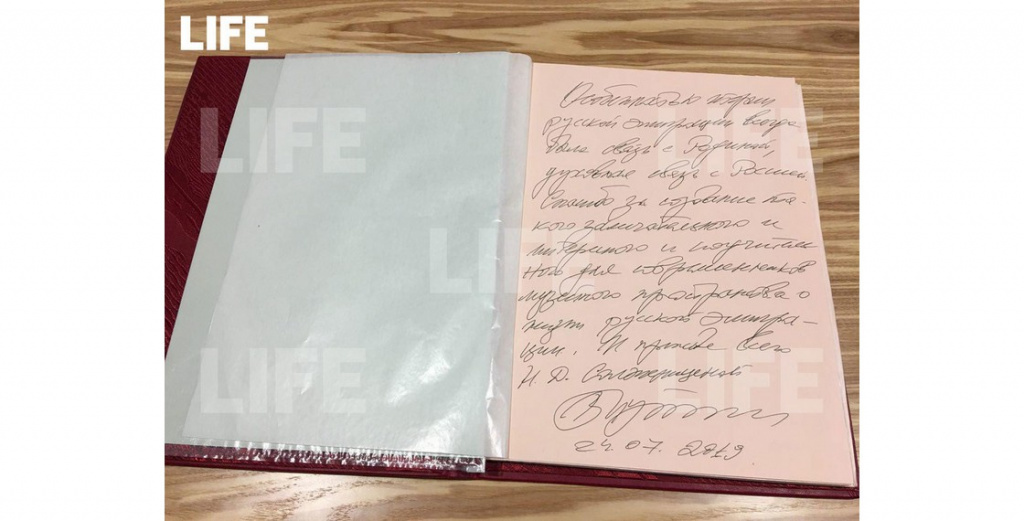 LIFE
LIFE
LIFE
LIFE
LIFE
LIFE
Особенностью
русской эмиграции всегда
была связь с Родиной,
духовная связь с Россией.
Спасибо за создание та-
кого замечательного и
интересного и поучитель
ного для современников
музейного пространства о
жизни русской эмигра-
ции. И прежде всего
Н. Д. Солженицыной
24 07. 2019